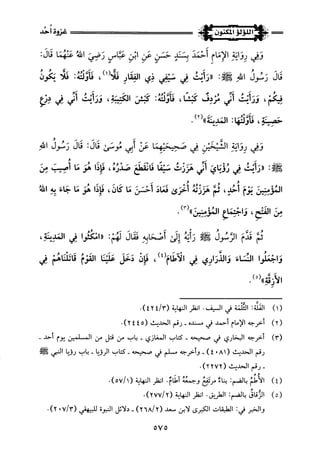 اللؤلؤ المكنون
غزوة أحد
وَفِي رِوَايَةِ الإِمَامِ أَحْمَدَ بِسَنَدٍ حَسَنٍ عَنِ ابْنِ عَبَّاسٍ رَضِيَ اللهُ عَنْهُمَا قَالَ:
قَالَ رَسُولُ اللهِ ﷺ: «رَأَيْتُ فِي سَيْفِي ذِي الفِقَارِ فَلًّا(١)، فَأَوَّلْتُهُ: فَلًّا يَكُونُ
فِيكُمْ، وَرَأَيْتُ أَنِّي مُرْدِفٌ كَبْشًا، فَأَوَّلْتُهُ: كَبْشَ الكَتِيبَةِ، وَرَأَيْتُ أَنِّي فِي دِرْعٍ
حَصِينَةٍ، فَأَوَّلْتُهَا: المَدِينَةَ»(٢).
وَفِي رِوَايَةِ الشَّيْخَيْنِ فِي صَحِيحَيْهِمَا عَنْ أَبِي مُوسَى قَالَ: قَالَ رَسُولُ اللهِ
ﷺ: «رَأَيْتُ فِي رُؤْيَايَ أَنِّي هَزَزْتُ سَيْفًا فَانْقَطَعَ صَدْرُهُ، فَإِذَا هُوَ مَا أُصِيبَ مِنَ
المُؤْمِنِينَ يَوْمَ أُحُدٍ، ثُمَّ هَزَزْتُهُ أُخْرَى فَعَادَ أَحْسَنَ مَا كَانَ، فَإِذَا هُوَ مَا جَاءَ بِهِ اللهُ
مِنَ الفَتْحِ، وَاجْتِمَاعِ المُؤْمِنِينَ»(٣).
ثُمَّ قَدَّمَ الرَّسُولُ ﷺ رَأْيَهُ إِلَى أَصْحَابِهِ فَقَالَ لَهُمْ: «امْكُثُوا فِي المَدِينَةِ،
وَاجْعَلُوا النِّسَاءَ وَالذَّرَارِي فِي الآطَامِ(٤)، فَإِنْ دَخَلَ عَلَيْنَا القَوْمُ قَاتَلْنَاهُمْ فِي
الأَزِقَّةِ»(٥).
(١) الفَلَّةُ: الثُّلْمَةُ في السيف. انظر النهاية (٤٢٤/٣).
(٢) أخرجه الإمام أحمد في مسنده ـ رقم الحديث (٢٤٤٥).
(٣) أخرجه البخاري في صحيحه ـ كتاب المغازي ـ باب من قتل من المسلمين يوم أحد ـ
رقم الحديث (٤٠٨١) ـ وأخرجه مسلم في صحيحه ـ كتاب الرؤيا ـ باب رؤيا النبي ﷺ
ـ رقم الحديث (٢٢٧٢).
(٤) الأُطُمُ بالضم: بناءٌ مرتَفِعٌ وجمعُهُ آطَامٌ. انظر النهاية (٥٧/١).
(٥) الزُّقَاقُ بالضم: الطريق. انظر النهاية (٢٧٧/٢).
والخبر في: الطبقات الكبرى لابن سعد (٢٦٨/٢) ـ دلائل النبوة للبيهقي (٢٠٧/٣).
٥٧٥